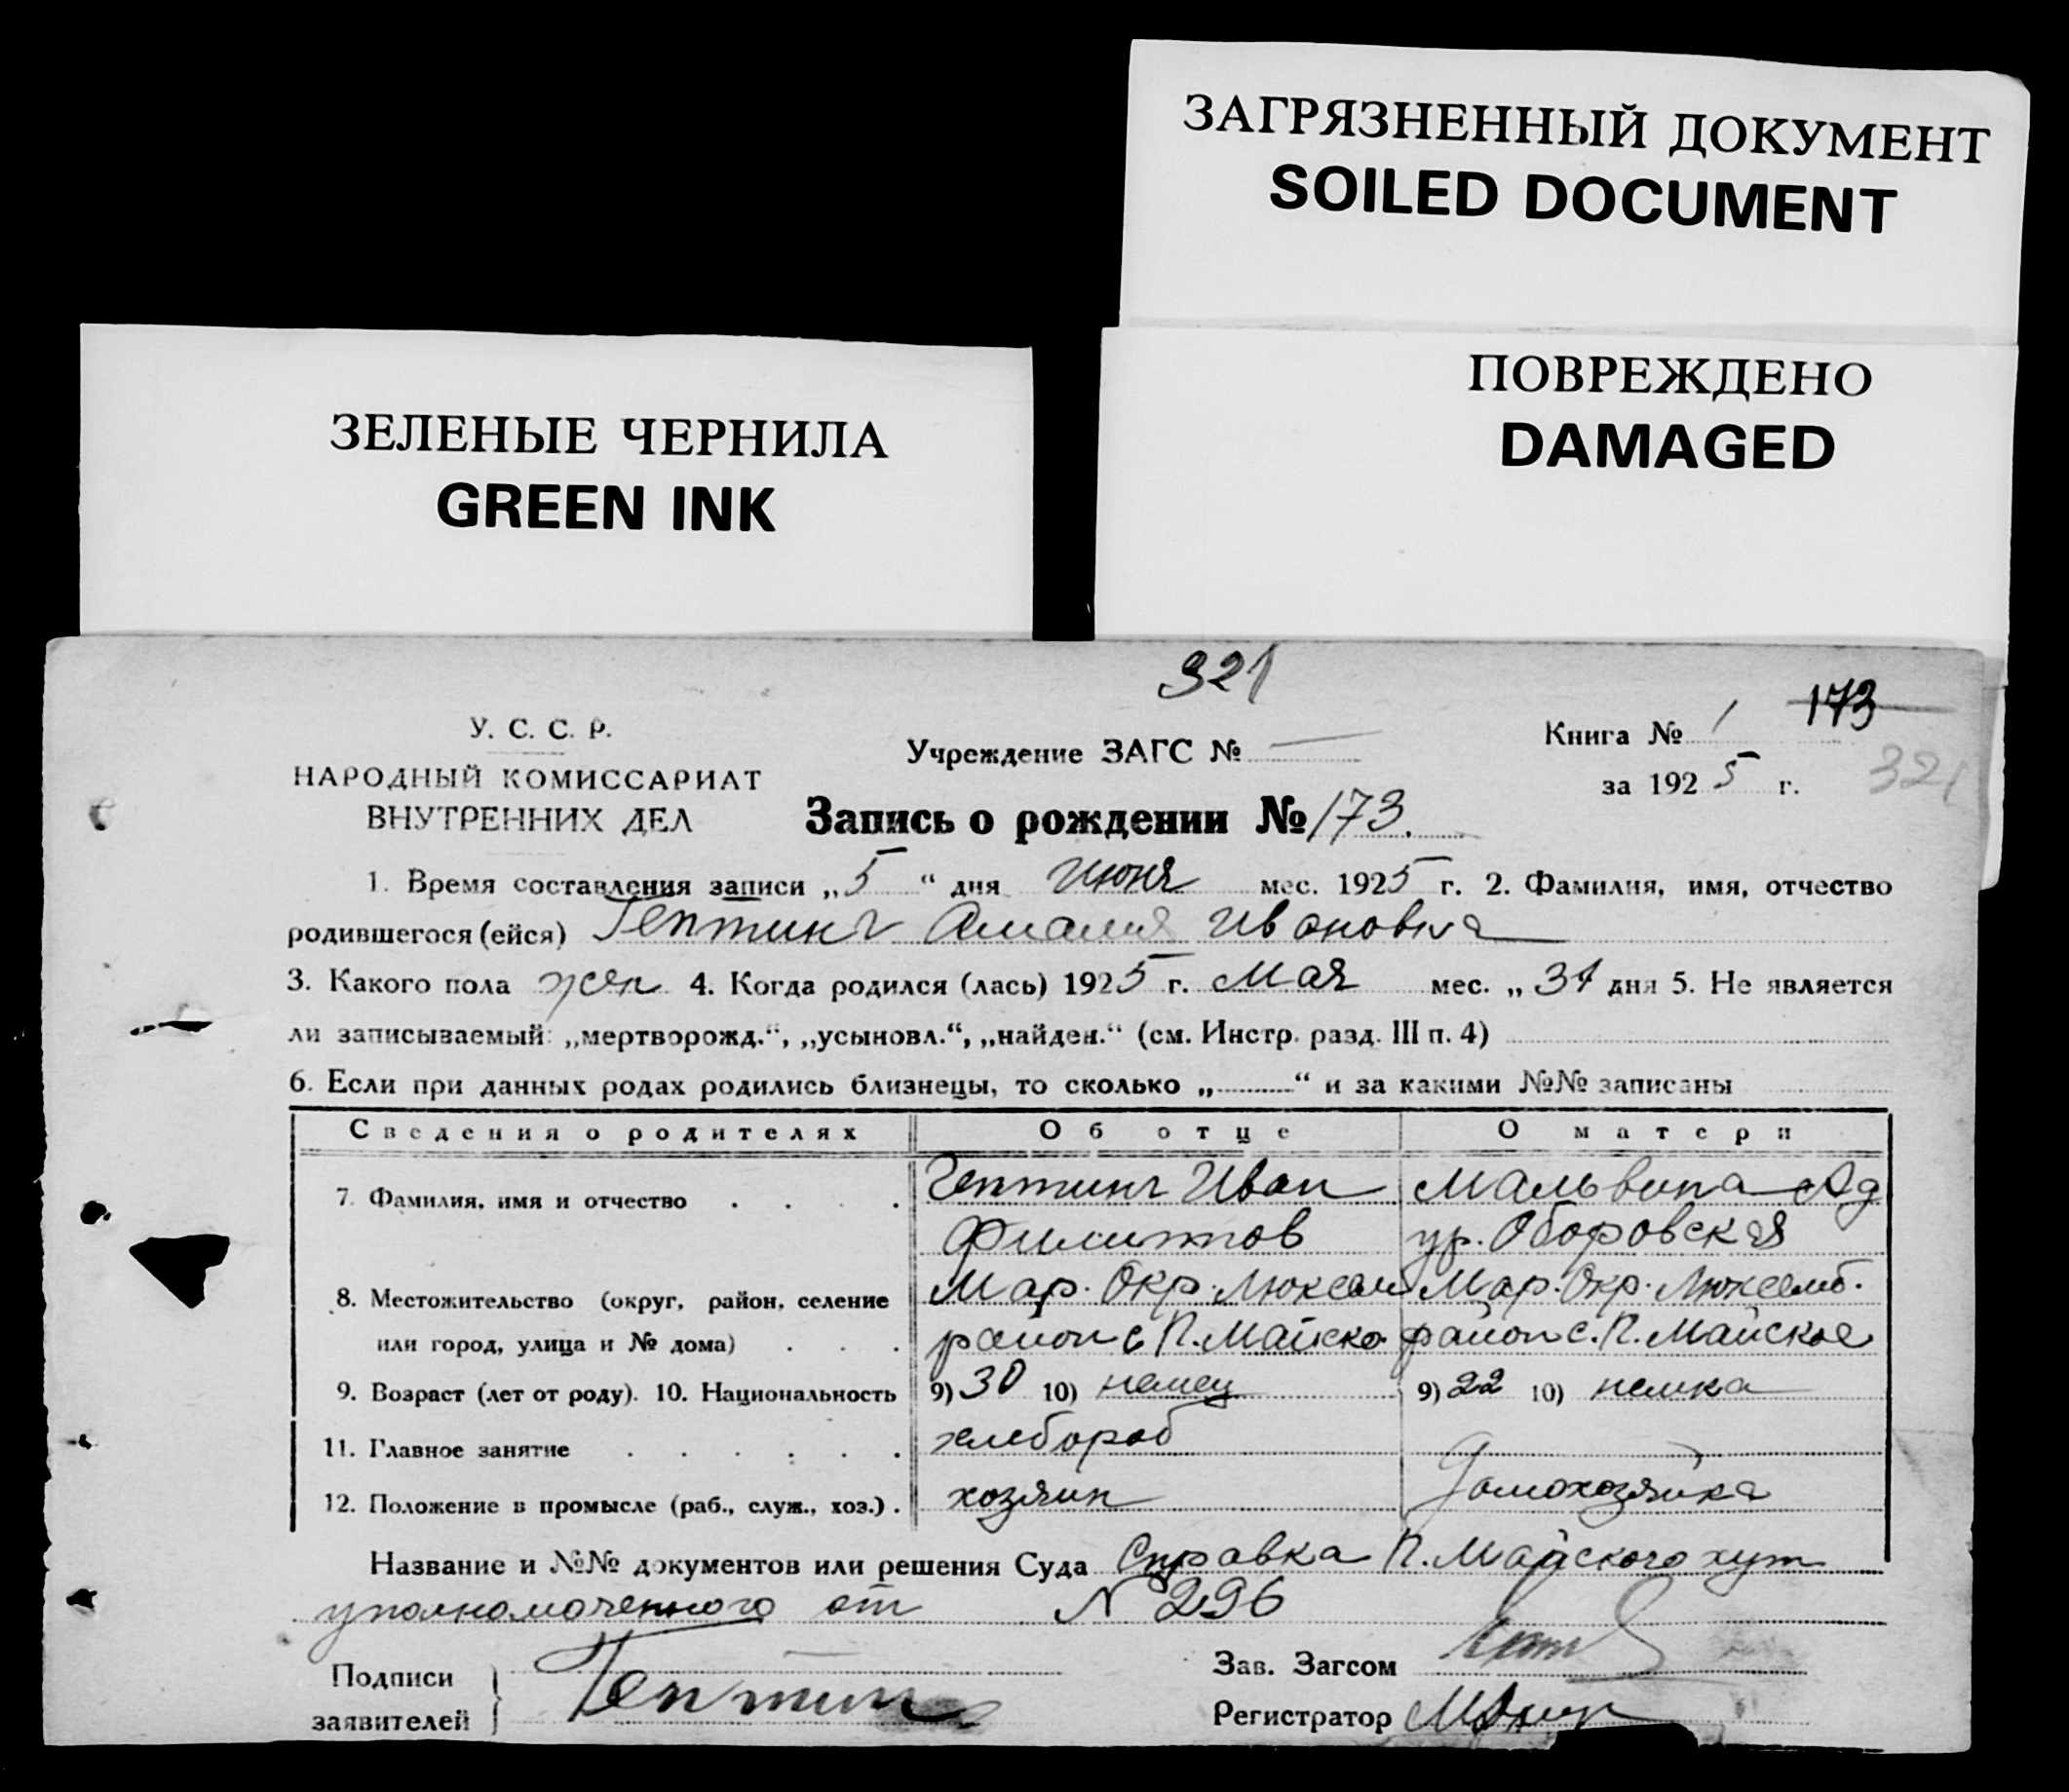 ЗАГРЯЗНЕННЫЙ ДОКУМЕНТ
SOILED DOCUMENT
ПОВРЕЖДЕНО
DAMAGED
ЗЕЛЕНЫЕ ЧЕРНИЛА
GREEN INK
321
173
У. С. С. Р.
НАРОДНЫЙ КОМИССАРИАТ
ВНУТРЕННИХ ДЕЛ
Учреждение ЗАГС № —
Книга № 1
за 1925 г. 321
Запись о рождении № 173.
1. Время составления записи „5“ дня Июня мес. 1925 г. 2. Фамилия, имя, отчество
родившегося (ейся) Гептинг Амалия Ивановна
3. Какого пола жен 4. Когда родился (лась) 1925 г. Мая мес. „31 дня 5. Не является
ли записываемый: „мертворожд.“, „усыновл.“, „найден.“ (см. Инстр. разд. III п. 4)
6. Если при данных родах родились близнецы, то сколько „ “ и за какими №№ записаны
Сведения о родителях Об отце О матери
7. Фамилия, имя и отчество Гептинг Иван Мальвина Ад
Филиппов ур. Оборовская
8. Местожительство (округ, район, селение Мар. Окр. Люксем Мар. Окр. Люксемб.
или город, улица и № дома) район с П. Майско район с. П. Майское
9. Возраст (лет от роду). 10. Национальность 9) 30 10) немец 9) 22 10) немка
11. Главное занятие хлебороб
12. Положение в промысле (раб., служ., хоз.) хозяин Домохозяйка
Название и №№ документов или решения Суда Справка П. Майского хут
уполномоченного от N 296
Подписи
заявителей } Гептинг
Зав. Загсом
Регистратор